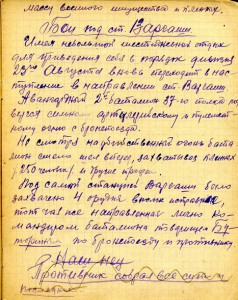 массу военного имущества и пленных.
Бои под ст. Варгаши
Имея небольшой шестидневный отдых
для приведения себя в порядок дивизия
23го Августа вновь переходит в нас-
тупление в направлении ст. Варгаши.
Авангардный 2й батальон 37-го полка по
вергся сильному артиллерийскому и пулемет
ному огню с бронепоезда.
Не смотря на убийственный огонь баталь
она смело шел вперед, захватывая пленных
(250 человек) и другие трофеи.
Под самой станцией Варгаши было
захвачено 4 орудия вполне исправные,
тотчас же направленные лично ко-
мандиром батальона товарищем Бу
по бронепоезду и противнику.
Противник создав все
последние